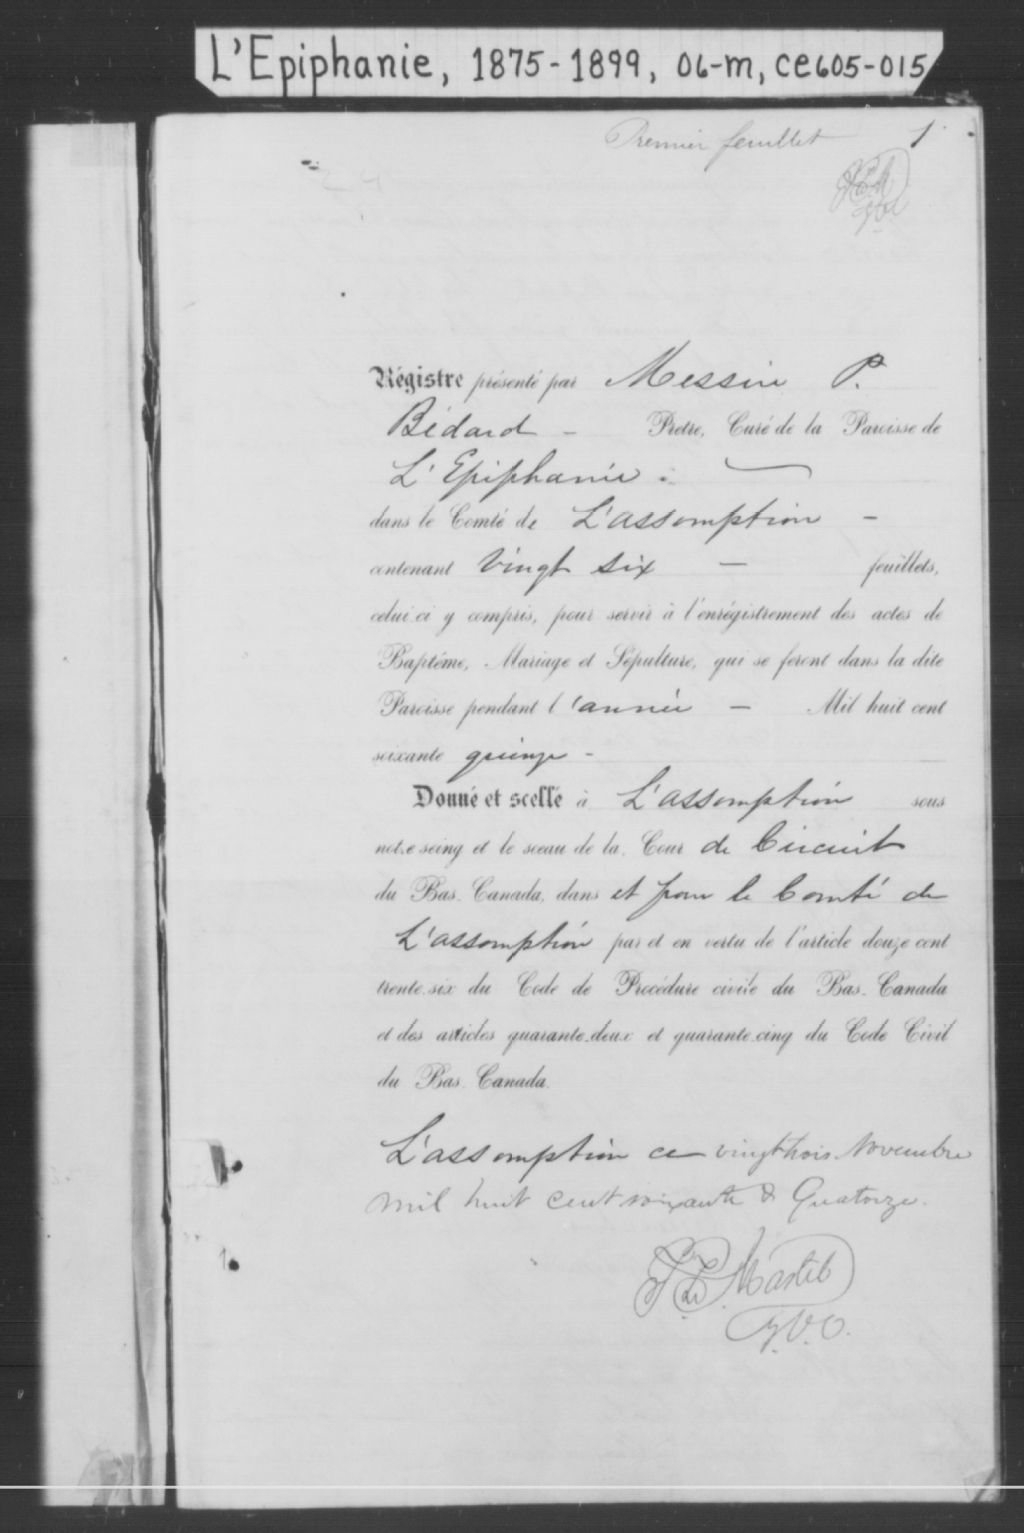 L'Epiphanie, 1875-1899, 06-m, ce605-015
Premier feuillet 1
Régistre présenté par Messire P.
Bédard - Prêtre, Curé de la Paroisse de
L'Epiphanie
dans le Comté de L'assomption -
contenant Vingt six - feuillets,
celui.ci y compris, pour servir à l'enrégistrement des actes de
Baptême, Mariage et Sépulture, qui se feront dans la dite
Paroisse pendant l'année - Mil huit cent
soixante quinze -
Donné et scellé à L'assomption sous
notre seing et le sceau de la Cour de Circuit
du Bas. Canada, dans et pour le Comté de
L'assomption par et en vertu de l'article douze cent
trente.six du Code de Procédure civile du Bas. Canada
et des articles quarante.deux et quarante.cinq du Code Civil
du Bas. Canada.
L'assomption ce vingt trois Novembre
mil huit cent soixante & Quatorze.
Martel